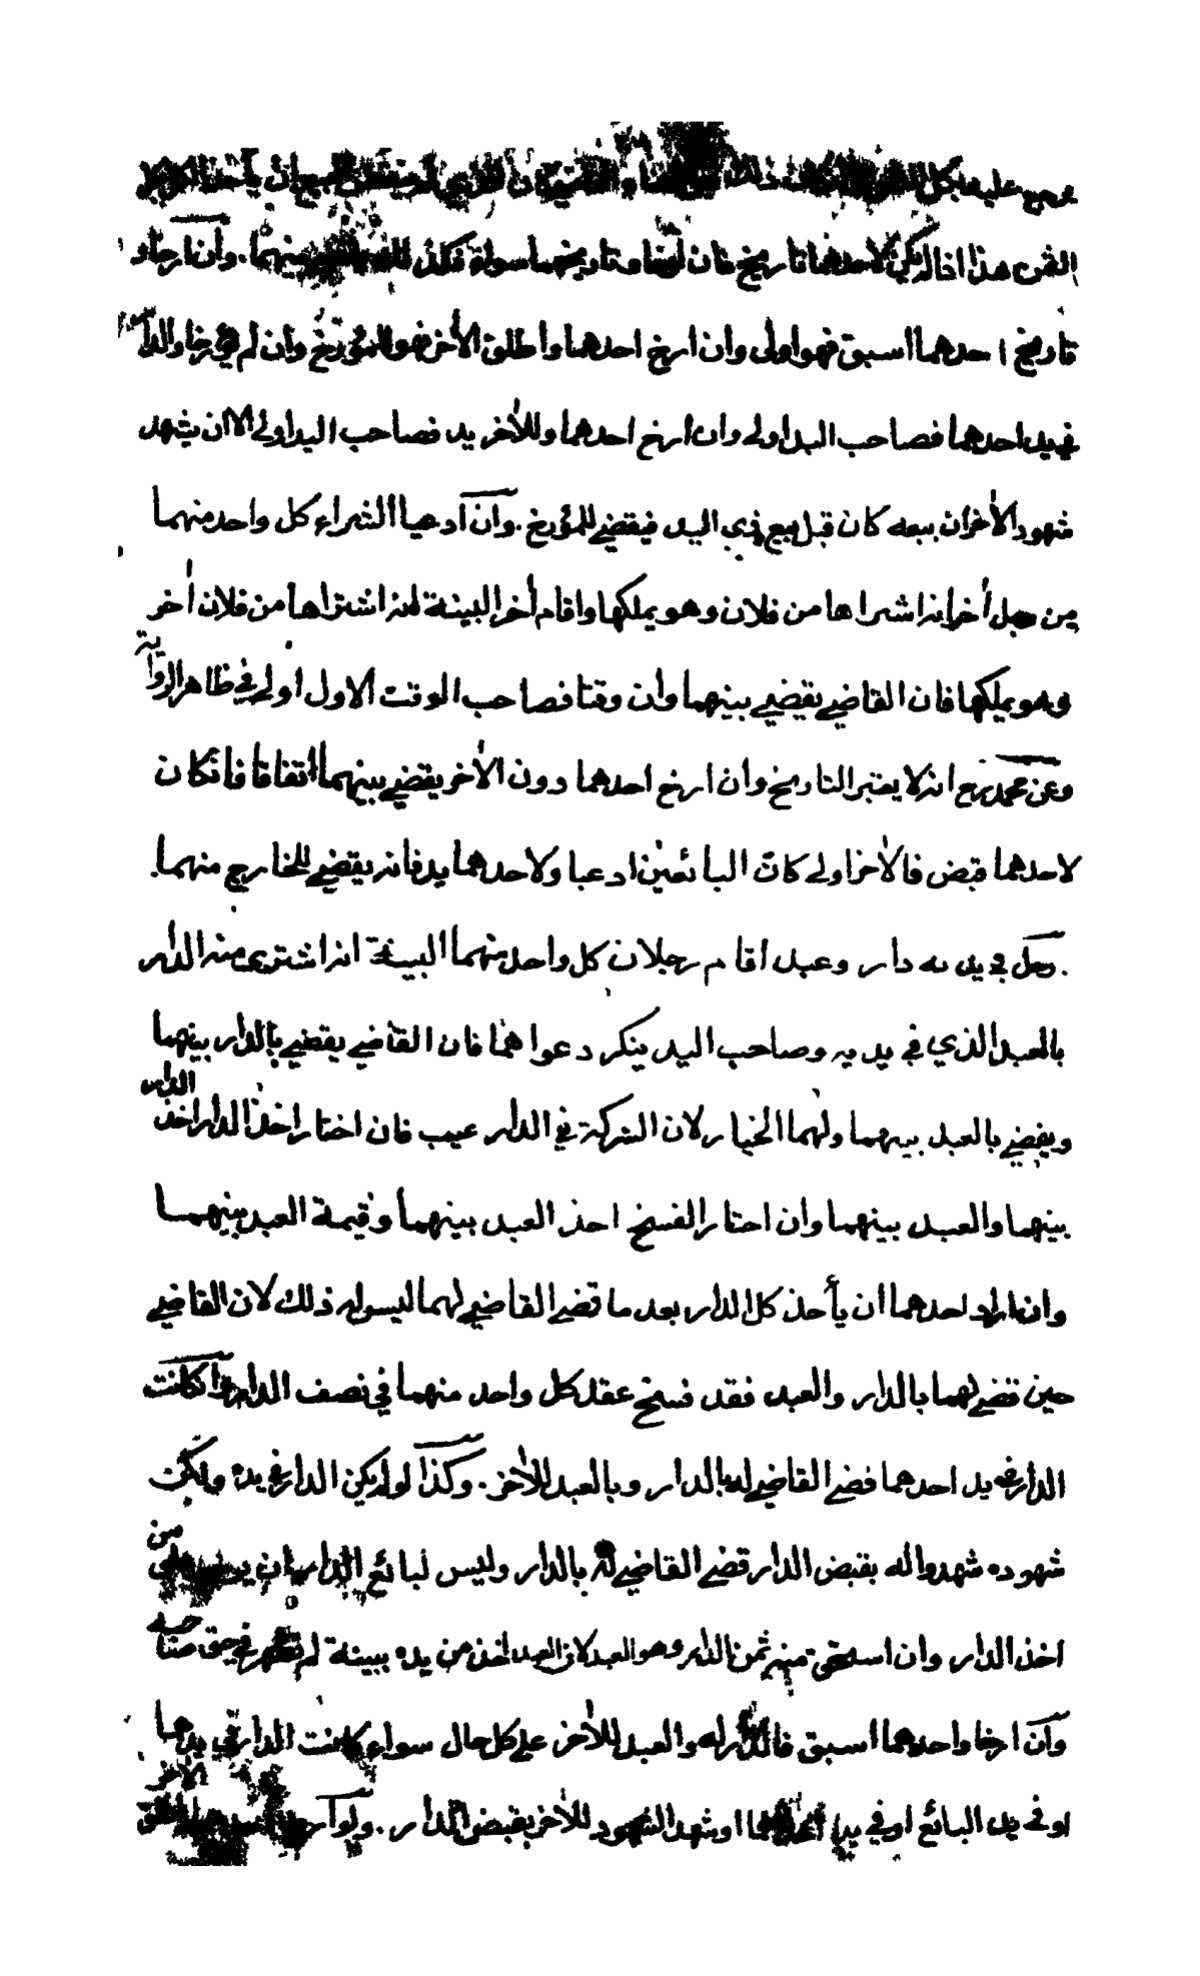 يرجع عليه بكل الثمن ذلك
الثمن هذا اذا لم يكن لاحدهما تاريخ فان ارخا وتاريخهما سواء فكذلك منهما. وان ارخا و
تاريخ احدهما اسبق فهو اولى وان ارخ احدهما واطلق الأخر فهو للمؤرخ وان لم يؤرخا والدار
في يد احدهما فصاحب اليد اولى وان ارخ احدهما وللأخر يد فصاحب اليد اولى الا ان يشهد
شهود الأخر ان بيعه كان قبل بيع ذي اليد فيقضي للمؤرخ. وان ادعيا الشراء كل واحد منهما
من رجل أخر انه اشتراها من فلان وهو يملكها واقام أخر البينة انه اشتراها من فلان أخر
وهو يملكها فان القاضي يقضي بينهما وان وقتا فصاحب الوقت الاول اولى في ظاهر الرواية
وعن محمد رح انه لا يعتبر التاريخ وان ارخ احدهما دون الأخر يقضي بينهما اتفاقا فان كان
لاحدهما قبض فالأخر اولى كان البائعين ادعيا ولاحدهما يد فانه يقضي للخارج منهما.
رجل في يديه دار وعبد اقام رجلان كل واحد منهما البينة انه اشترى منه الدار
بالعبد الذي في يديه وصاحب اليد ينكر دعواهما فان القاضي يقضي بالدار بينهما
ويقضي بالعبد بينهما ولهما الخيار لان الشركة في الدار عيب فان اختار اخذ الدار اخذ الدار
بينهما والعبد بينهما وان اختار الفسخ اخذ العبد بينهما وقيمة العبد بينهما
وان اراد احدهما ان يأخذ كل الدار بعد ما قضى القاضي لهما ليس له ذلك لان القاضي
حين قضى لهما بالدار والعبد فقد فسخ عقد كل واحد منهما في نصف الدار وان كانت
الدار في يد احدهما قضى القاضي له بالدار وبالعبد للأخر. وكذا لو لم يكن الدار في يده ولكن
شهوده شهدوا له بقبض الدار قضى القاضي له بالدار وليس لبائع الدار ان على من
اخذ الدار وان استحق منه ثمن الدار وهو العبد لان العبد اخذ من يده ببينة لم تظهر في حق صاحبه
وان ارخا واحدهما اسبق فالدار له والعبد للأخر على كل حال سواء كانت الدار في يدهما
او في يد البائع او في يد احدهما او شهد الشهود للأخر بقبض الدار. ولو ارخ احدهما واطلق الأخر